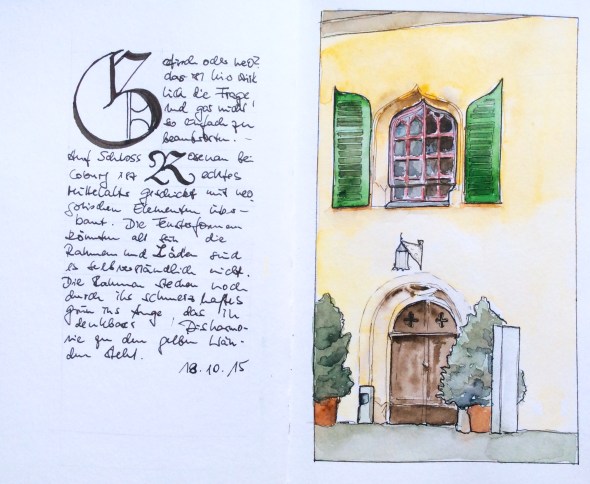 Gotisch oder neo?
das ist hier wirk
lich die Frage
und gar nicht
so einfach zu
beantworten. –
Auf Schloss Rosenau bei
Coburg ist echtes
Mittelalter geschickt mit neo
gotischen Elementen über-
baut. Die Fensterformen
könnten alt sein die
Rahmen und Läden sind
es selbstverständlich nicht.
Die Rahmen stechen noch
durch ihr schmerzhaftes
grün ins Auge das in
denkbarer Disharmo-
nie zu den gelben Wän-
den steht.
18.10.15